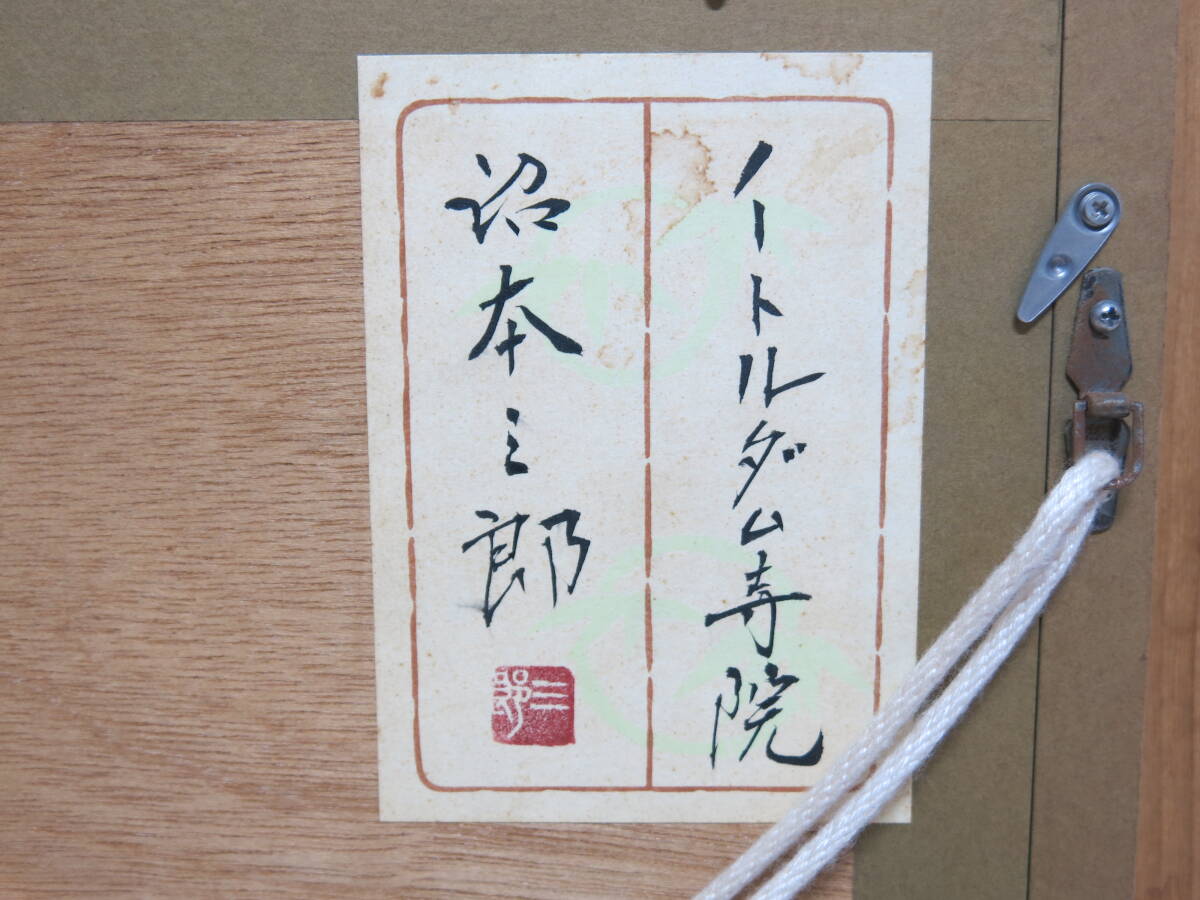 ノートルダム寺院
沼本三郎
三郎